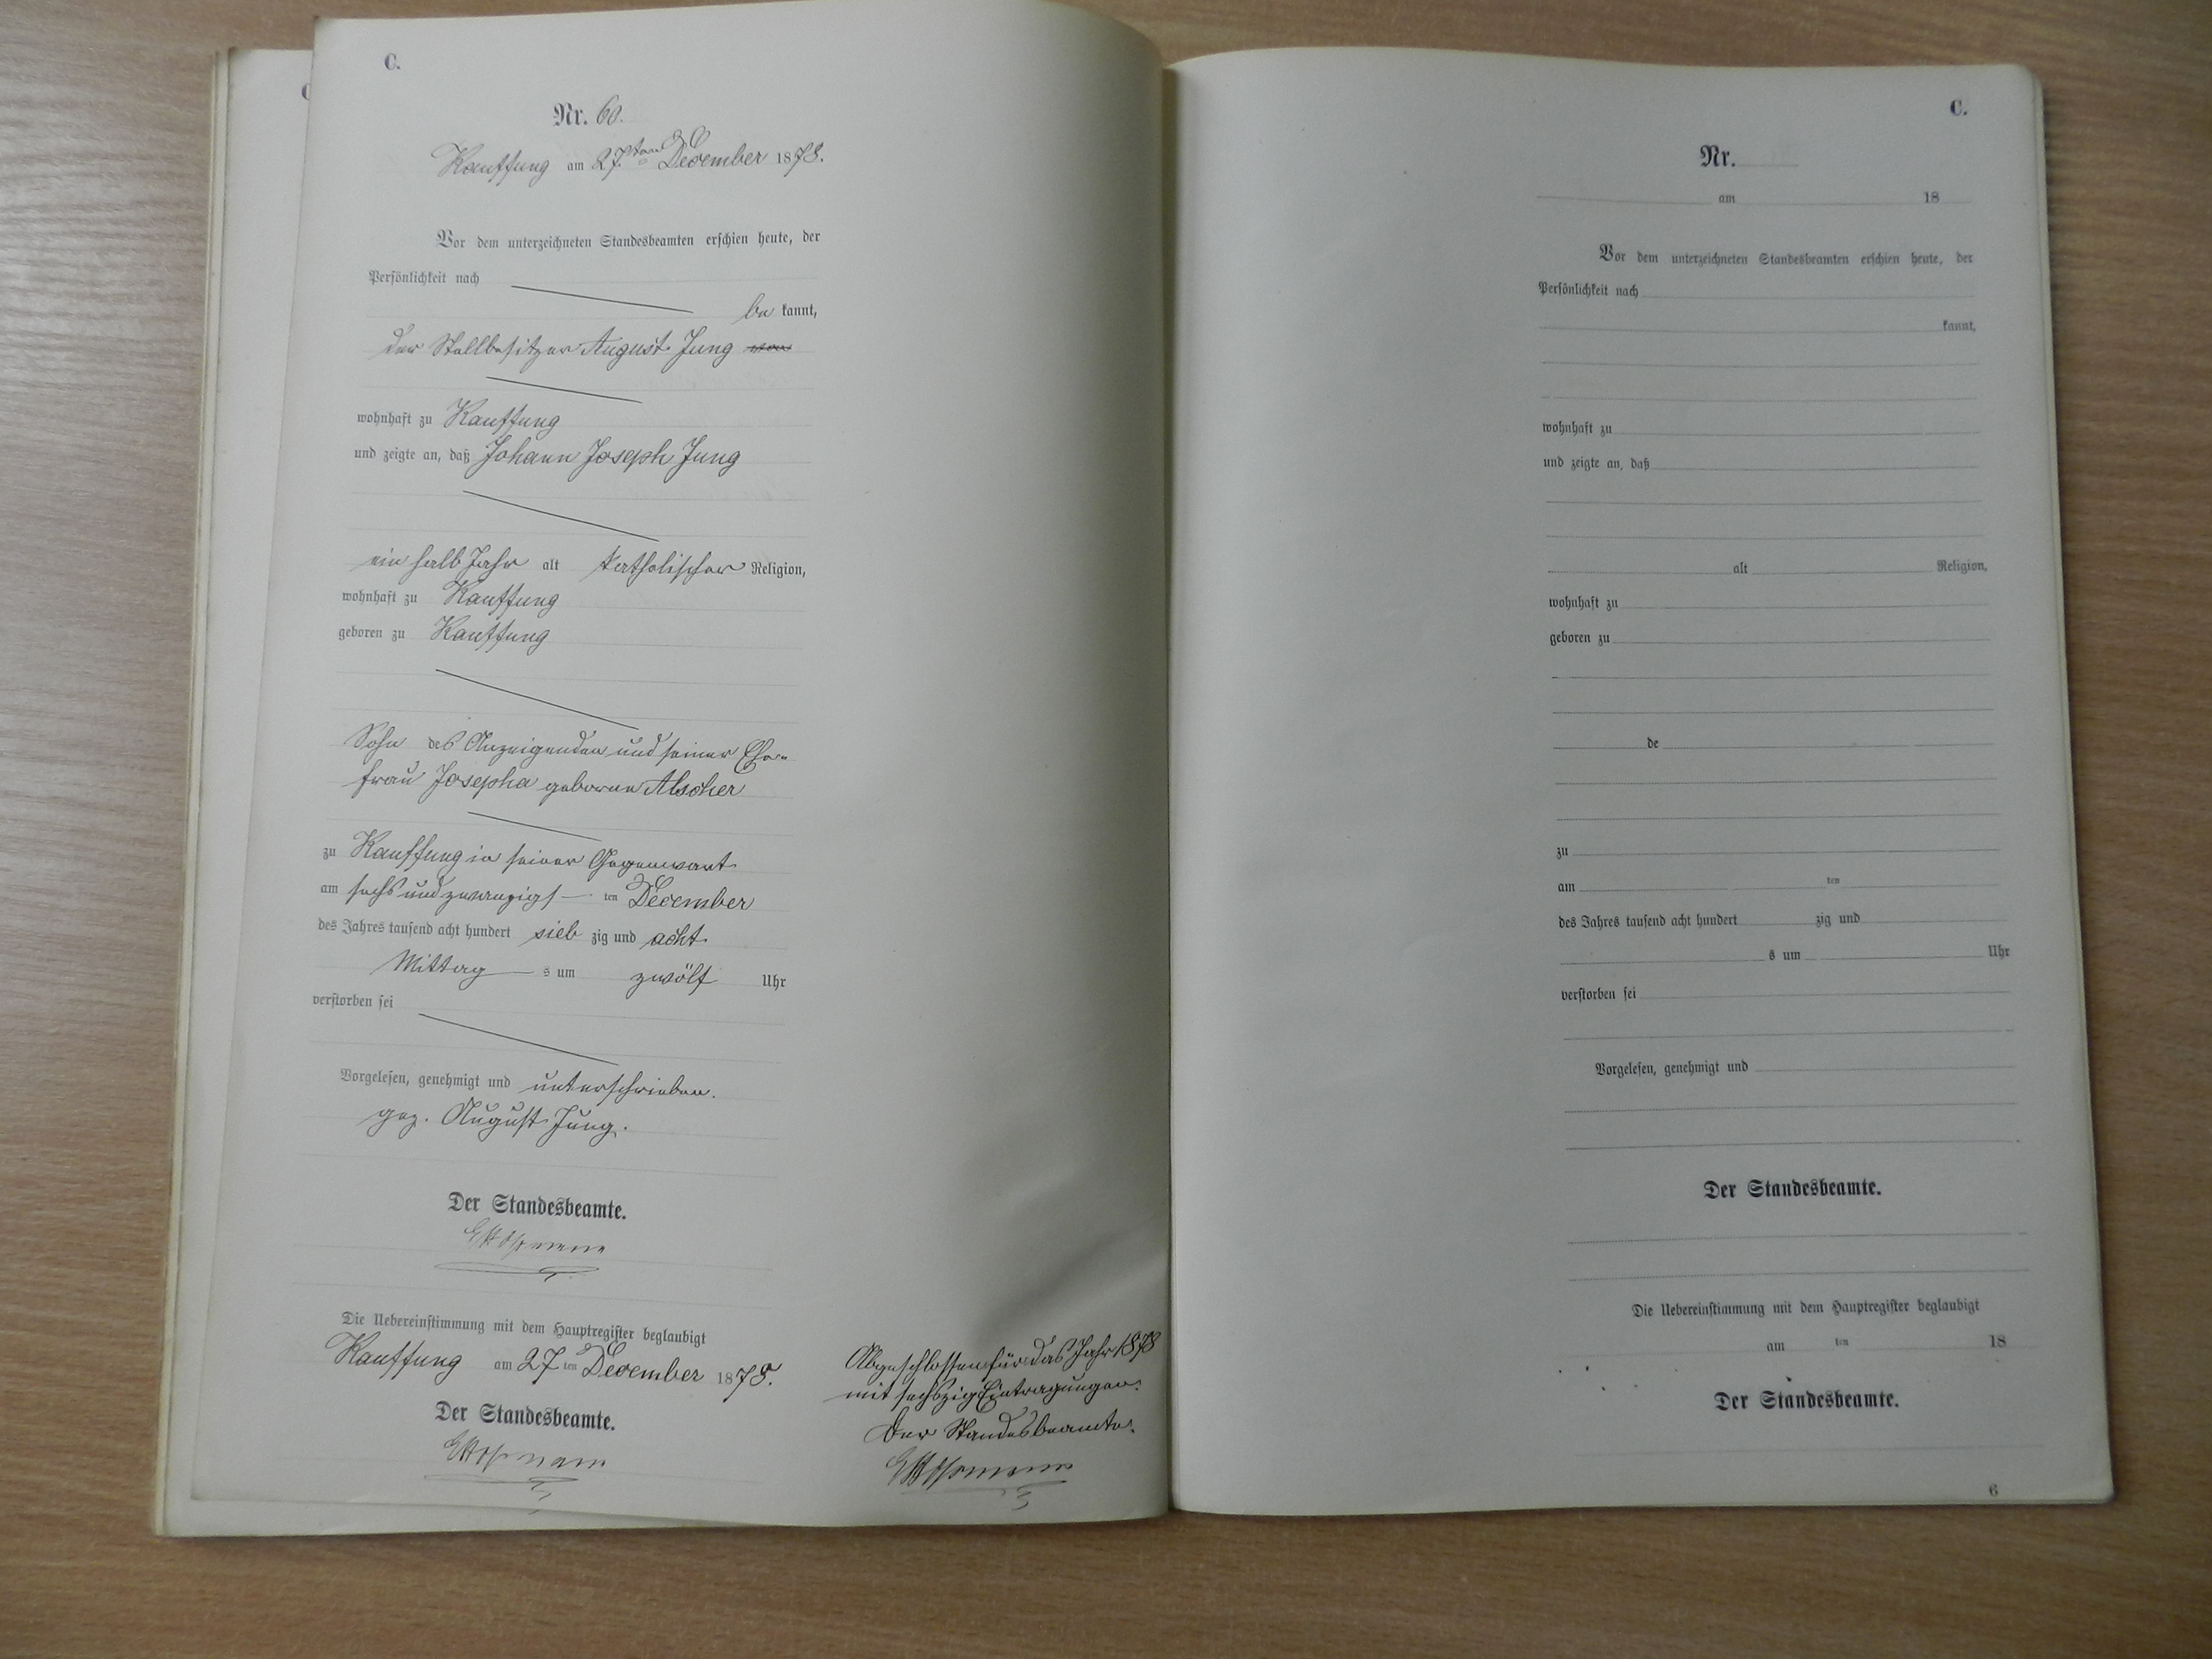 C.
Nr. 60.
Kauffung am 27ten December 1878.
Vor dem unterzeichneten Standesbeamten erschien heute, der
Persönlichkeit nach
be kannt,
der Stellbesitzer August Jung
wohnhaft zu Kauffung
und zeigte an, daß Johann Joseph Jung
ein halb Jahr alt katholischer Religion,
wohnhaft zu Kauffung
geboren zu Kauffung
Sohn des Anzeigenden und seiner Ehe-
frau Josepha geborne Alscher
zu Kauffung in seiner Gegenwart
am sechs und zwanzigst ten December
des Jahres tausend acht hundert sieb zig und acht
Mittag s um zwölf Uhr
verstorben sei
Vorgelesen, genehmigt und unterschrieben.
gez. August Jung.
Der Standesbeamte.
Die Uebereinstimmung mit dem Hauptregister beglaubigt
Kauffung am 27 ten December 1878.
Der Standesbeamte.
Abgeschlossen für das Jahr 1878
mit sechszig Eintragungen.
Der Standesbeamte.
C.
Nr.
am 18
Vor dem unterzeichneten Standesbeamten erschien heute, der
Persönlichkeit nach
kannt,
wohnhaft zu
und zeigte an, daß
alt Religion,
wohnhaft zu
geboren zu
de
zu
am ten
des Jahres tausend acht hundert zig und
s um Uhr
verstorben sei
Vorgelesen, genehmigt und
Der Standesbeamte.
Die Uebereinstimmung mit dem Hauptregister beglaubigt
am ten 18
Der Standesbeamte.
6